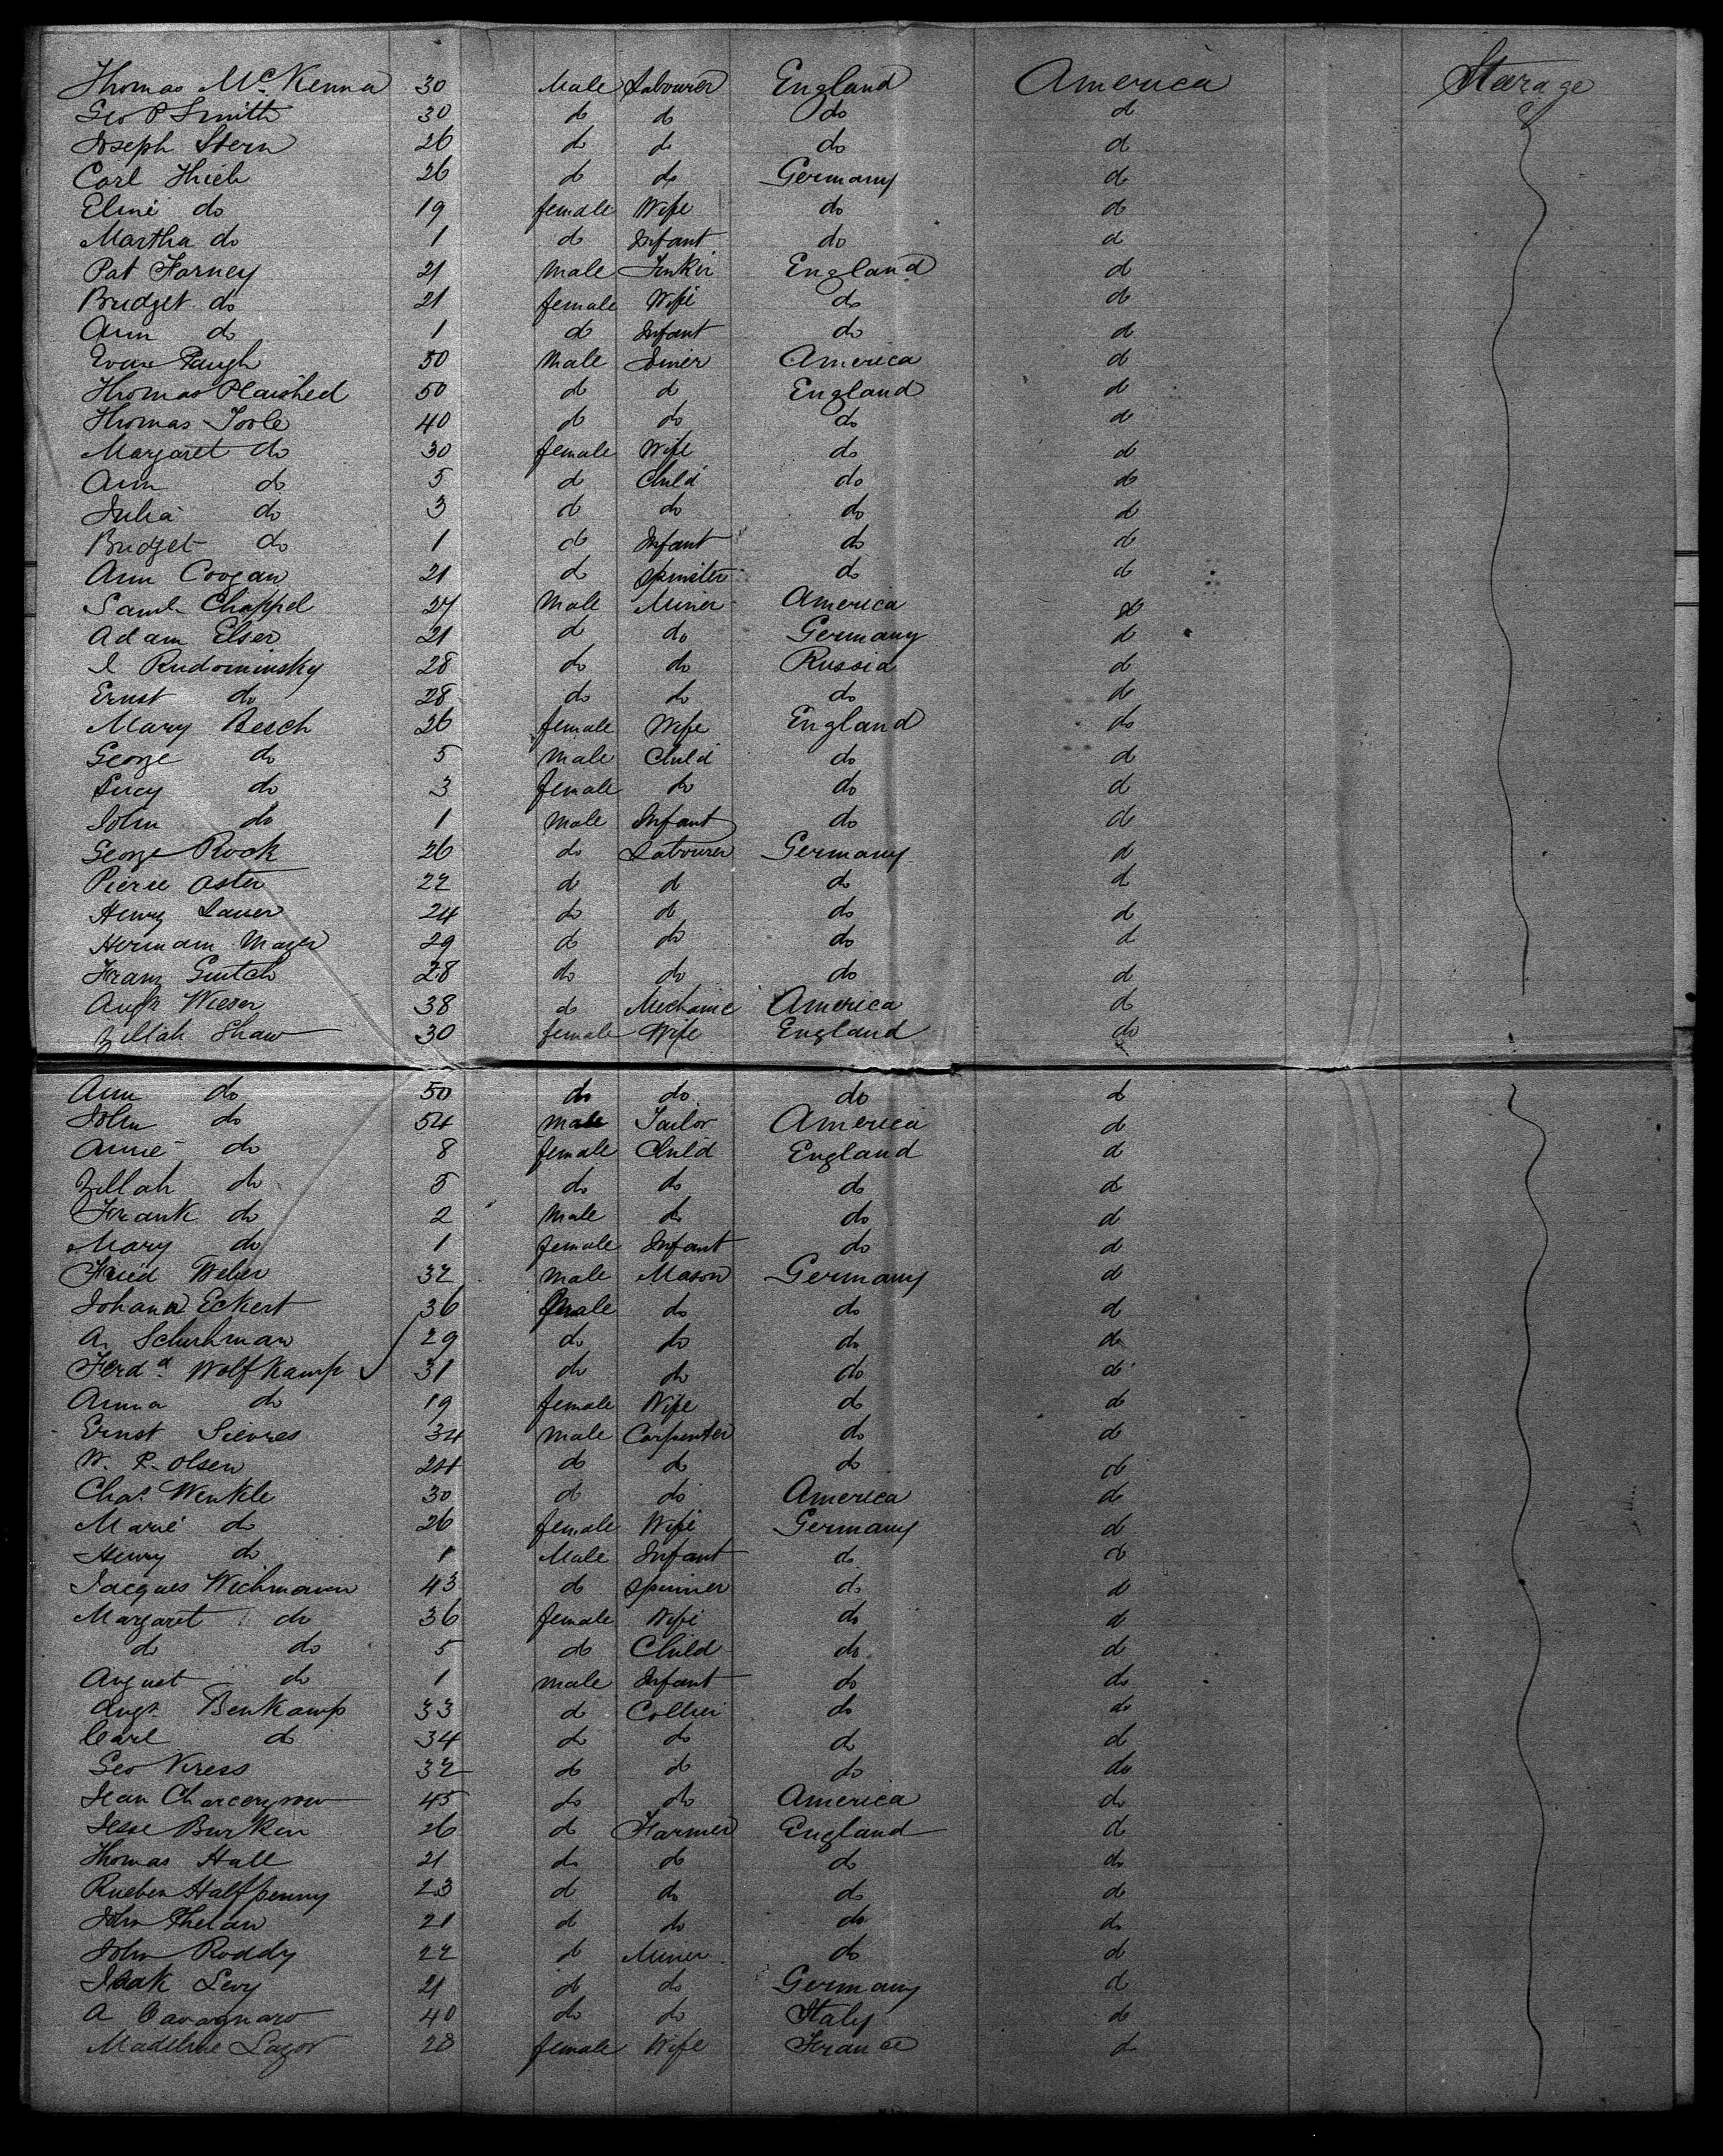 Thomas McKenna 30 Male Labourer England America Starage
Geo P Smith 30 do do do do
Joseph Stern 26 do do do do
Carl Thieh 26 do do Germany do
Eliné do 19 female Wife do do
Martha do 1 do Infant do do
Pat Farney 21 Male Tinker England do
Bridget do 21 female Wife do do
Ann do 1 do Infant do do
Evan Paugh 30 Male Joiner America do
Thomas Plaished 50 do do England do
Thomas Toole 40 do do do do
Margaret do 30 female Wife do do
Ann do 5 do Child do do
Julia do 3 do do do do
Bridget do 1 do Infant do do
Ann Coogan 21 do Spinster do do
Saml Chappel 27 Male Miner America do
Adam Elser 21 do do Germany do
I Rudominsky 28 do do Russia do
Ernst do 28 do do do do
Mary Beech 26 female Wife England do
George do 5 Male Child do do
Lucy do 3 female do do do
John do 1 Male Infant do do
George Rock 26 do Labourer Germany do
Pierre Aster 22 do do do do
Henry Lauer 24 do do do do
Hermam Mayer 29 do do do do
Franz Gutch 28 do do do do
Augt Wieser 38 do Mechanic America do
Zillah Shaw 30 female Wife England do
Ann do 50 do do do do
John do 54 male Tailor America do
Annie do 8 female Child England do
Zillah do 5 do do do do
Frank do 2 Male do do do
Mary do 1 female Infant do do
Fried Weber 32 Male Mason Germany do
Johann Eckert 36 male do do do
A. Schuhman 29 do do do do
Ferdd Wolfkamp 31 do do do do
Anna do 19 female Wife do do
Ernst Sievres 34 Male Carpenter do do
W. P. Olsen 24 do do do do
Chas Wenkle 30 do do America do
Marie do 26 female Wife Germany do
Henry do 1 Male Infant do do
Jacques Wichmann 43 do Spinner do do
Margaret do 36 female Wife do do
do do 5 do Child do do
August do 1 male Infant do do
Augt Benkamp 33 do Collier do do
Carl do 34 do do do do
Geo Kress 32 do do do do
Jean 45 do do America do
Jesse Burken 26 do Farmer England do
Thomas Hall 21 do do do do
Rueben Halfpenny 23 do do do do
John Phelan 21 do do do do
John Roddy 22 do Miner do do
Isaak Levy 21 do do Germany do
A Cavagnaro 40 do do Italy do
Madeline Lagor 28 female Wife France do